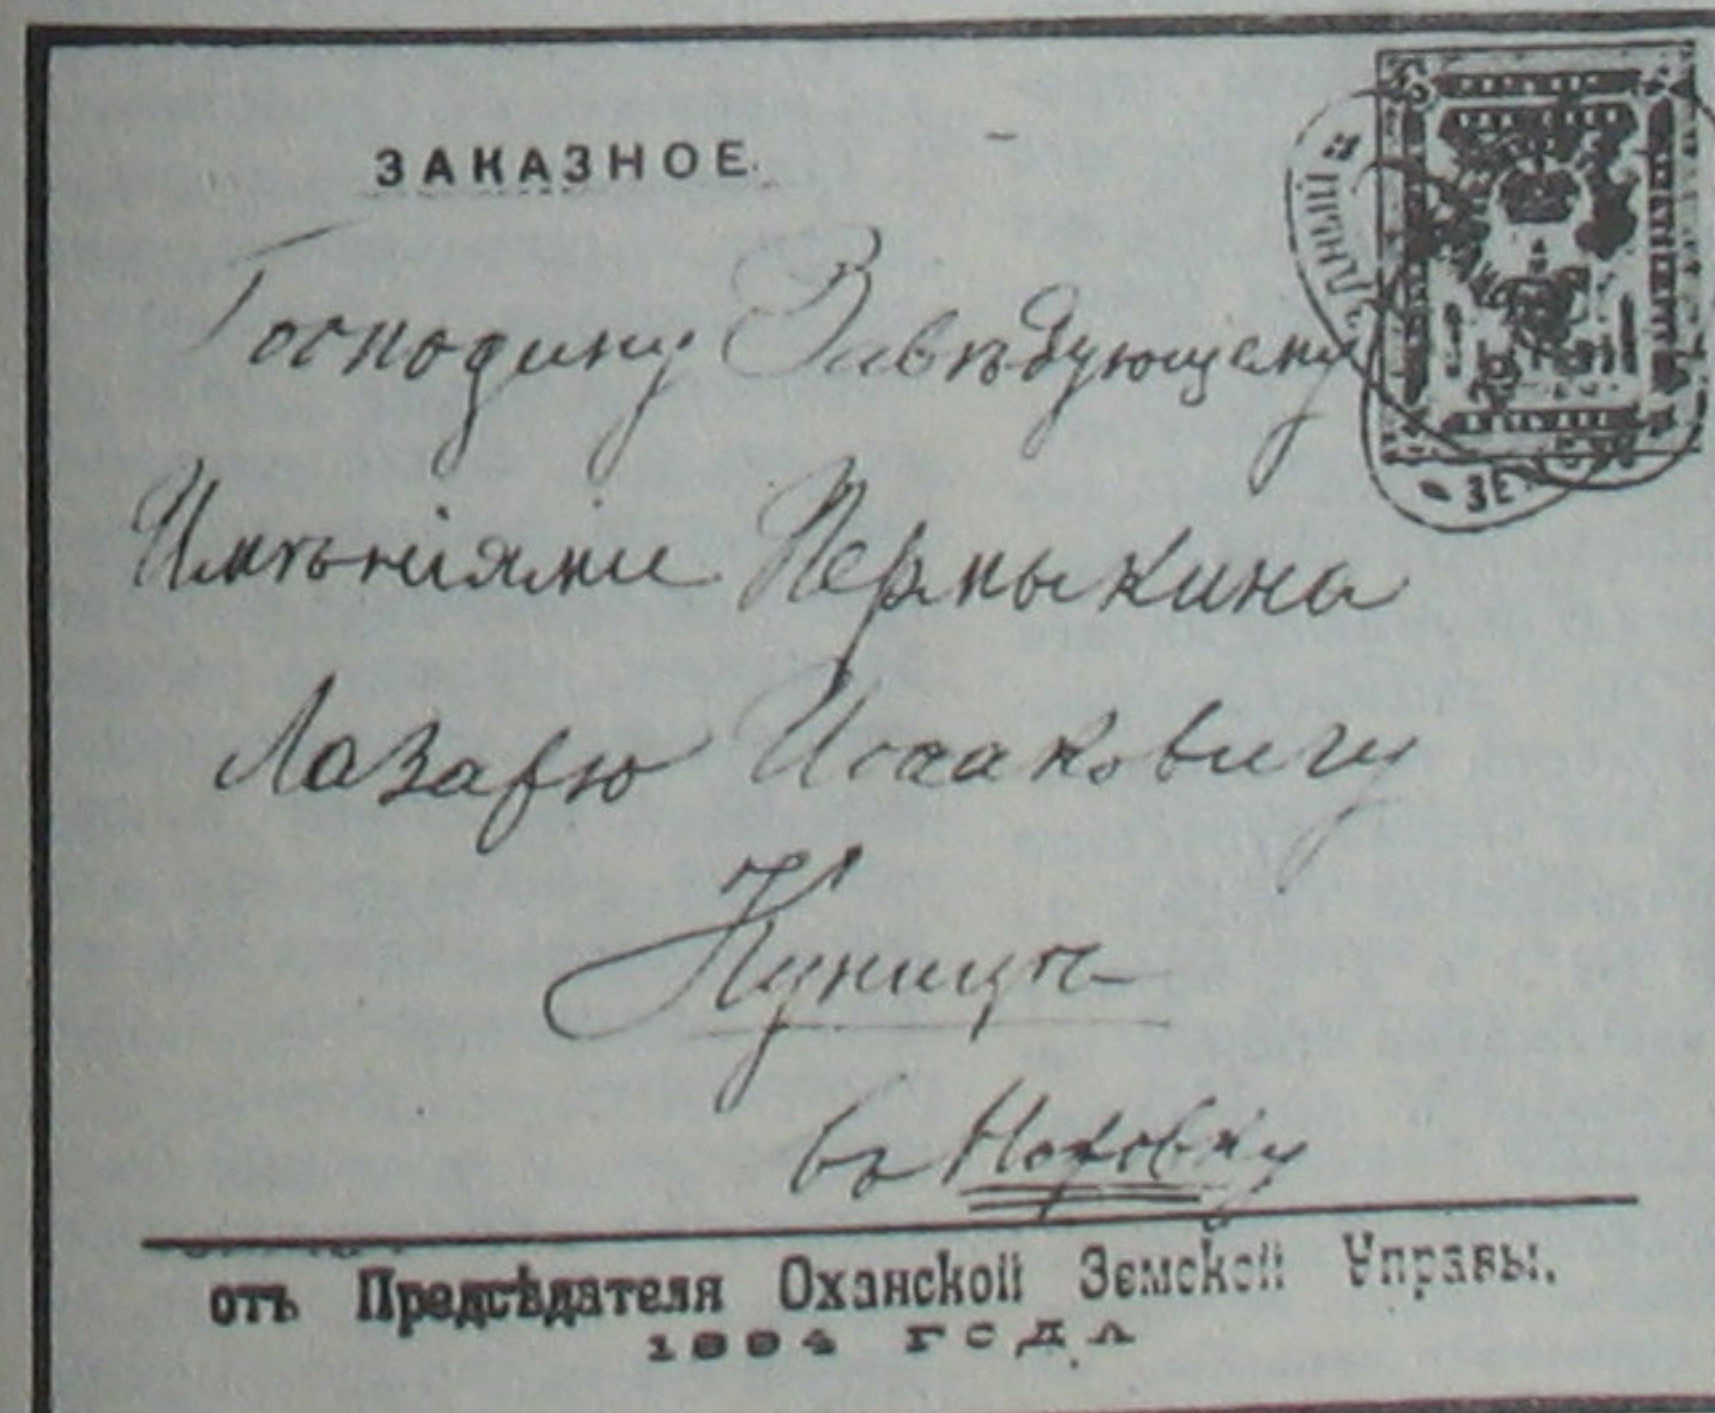 ЗАКАЗНОЕ.
Господину Завѣдующему
Имѣніями Пермыкина
Лазарю Исааковичу
Куницѣ
въ
отъ Предсѣдателя Оханской Земской Управы.
года